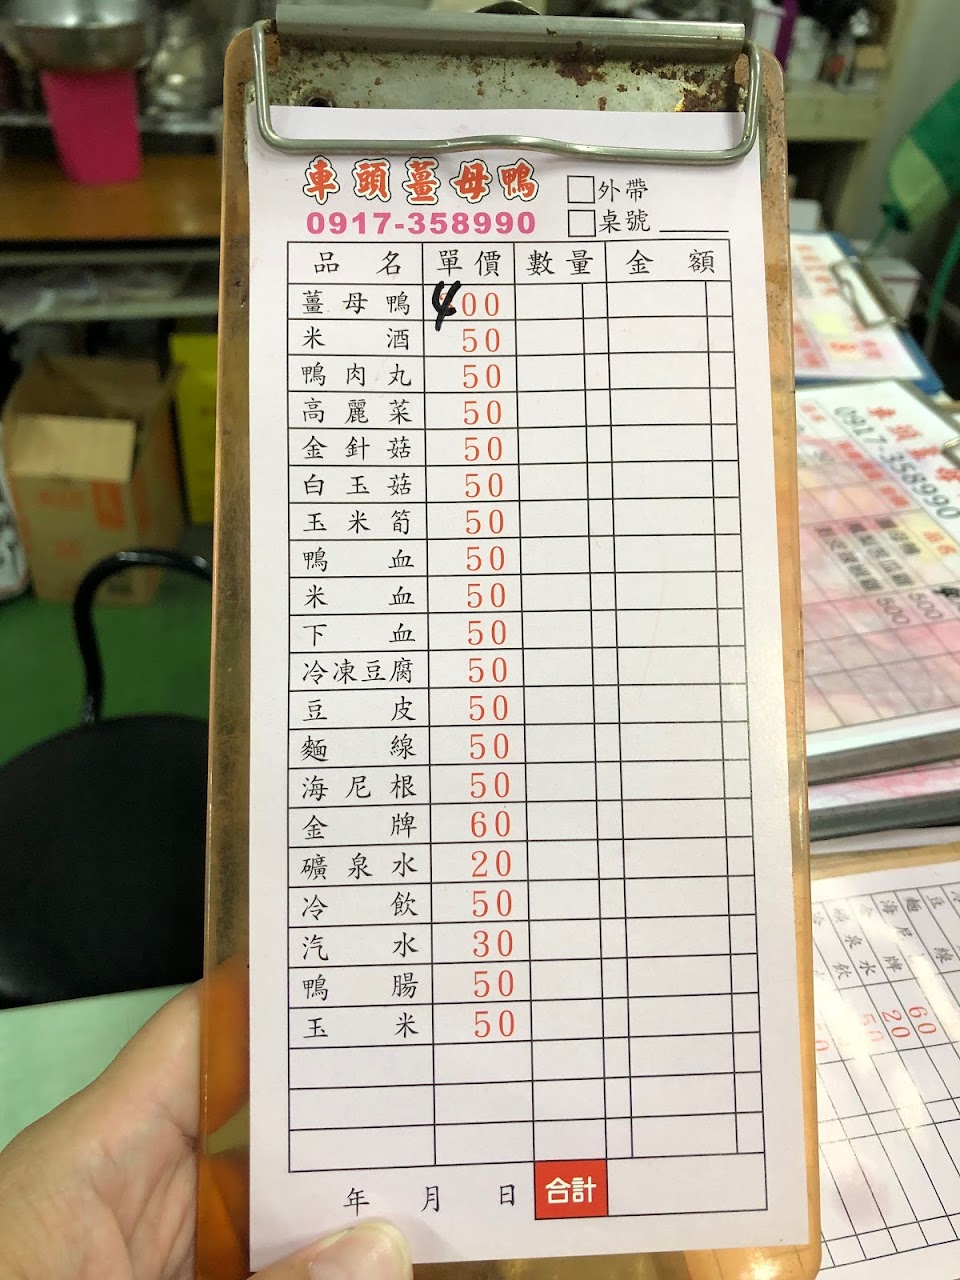 車頭薑母鴨
0917-358990
外帶
桌號
品名 單價 數量 金額
薑母鴨 400
米酒 50
鴨肉丸 50
高麗菜 50
金針菇 50
白玉菇 50
玉米筍 50
鴨血 50
米血 50
下血 50
冷凍豆腐 50
豆皮 50
麵線 50
海尼根 50
金牌 60
礦泉水 20
冷飲 50
汽水 30
鴨腸 50
玉米 50
年 月 日 合計
0917-358990
品名
500
500
麵線
海尼
金牌
泉水
飲
60
20
50